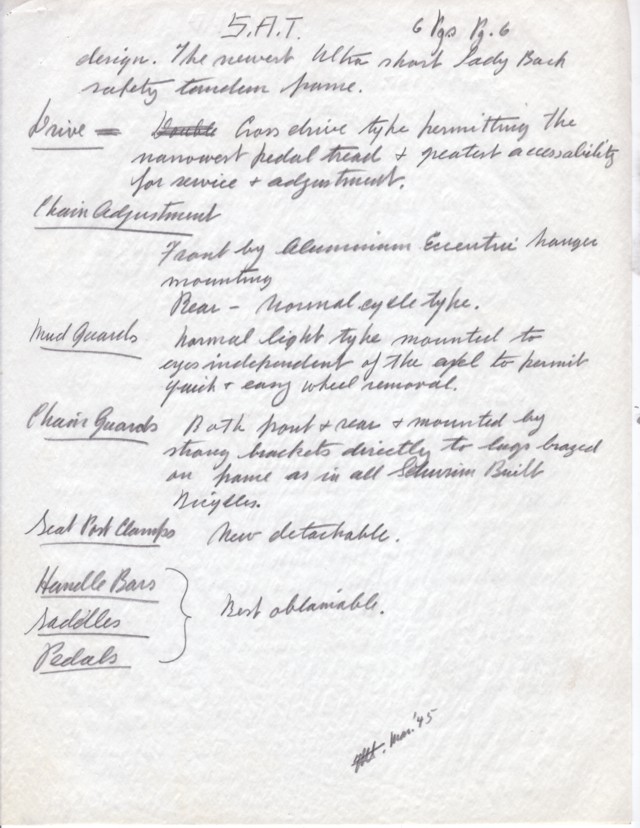 S.A.T. 6 Pgs Pg. 6
design. The newest Ultra short Lady Back
safety tandem frame.
Drive = Double Cross drive type permitting the
narrowest pedal tread + greatest accessability
for service + adjustment.
Chain Adjustment
Front by Aluminium Eccentric hanger
mounting
Rear - Normal cycle type.
Mud Guards Normal light type mounted to
eyes independent of the axel to permit
quick + easy wheel removal.
Chain Guards Both front & rear & mounted by
strong brackets directly to lugs brazed
on frame as in all Schwinn Built
Bicycles.
Seat Post Clamps New detachable.
Handle Bars
Saddles Best obtainable.
Pedals
Mar. '45